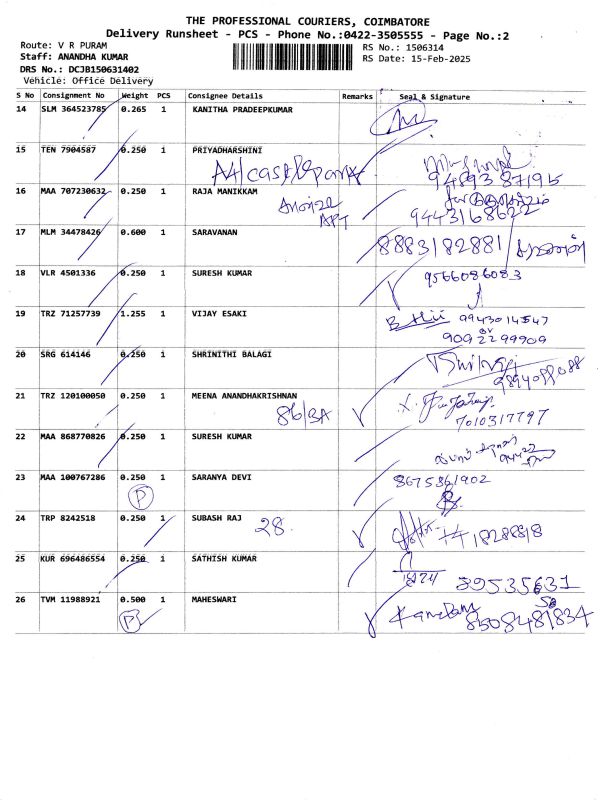 THE PROFESSIONAL COURIERS, COIMBATORE
Delivery Runsheet - PCS - Phone No.:0422-3505555 - Page No.:2
Route: V R PURAM
RS No.: 1506314
Staff: ANANDHA KUMAR
RS Date: 15-Feb-2025
DRS No.: DCJB150631402
Vehicle: Office Delivery
S No Consignment No Weight PCS Consignee Details Remarks Seal & Signature
14 SLM 364523785 0.265 1 KANITHA PRADEEPKUMAR
15 TEN 7904587 0.250 1 PRIYADHARSHINI
9489387195
16 MAA 707230632 0.250 1 RAJA MANIKKAM
APT
9443168622
17 MLM 34478426 0.600 1 SARAVANAN 8883182881
18 VLR 4501336 0.250 1 SURESH KUMAR 9566086083
19 TRZ 71257739 1.255 1 VIJAY ESAKI
9943014547
9092299909
20 SRG 614146 0.250 1 SHRINITHI BALAGI
9894099088
21 TRZ 120100050 0.250 1 MEENA ANANDHAKRISHNAN
86/3A
7010317797
22 MAA 868770826 0.250 1 SURESH KUMAR
23 MAA 100767286 0.250 1 SARANYA DEVI 8675861902
P
24 TRP 8242518 0.250 1 SUBASH RAJ 28
25 KUR 696486554 0.250 1 SATHISH KUMAR
89535631
26 TVM 11988921 0.500 1 MAHESWARI
P
8508481834